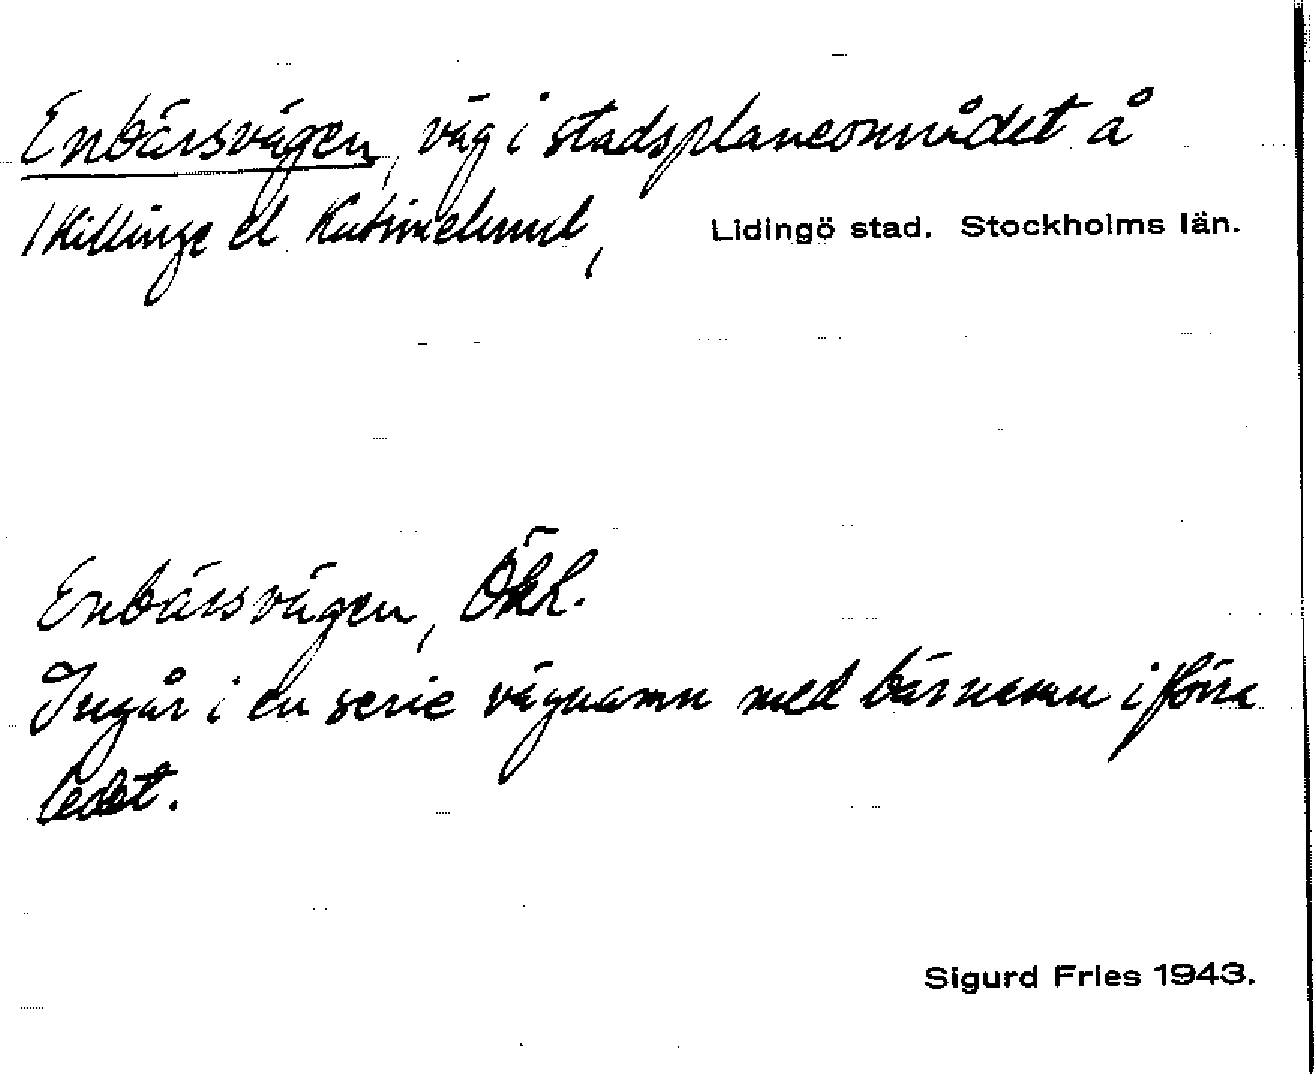 Enbärsvägen, väg i stadsplaneområdet å
Killinge el Katrinelund, Lidingö stad. Stockholms län.
Enbärsvägen, Ökk.
Ingår i en serie vägnamn med bärnamn i förra
ledet.
Sigurd Fries 1943.